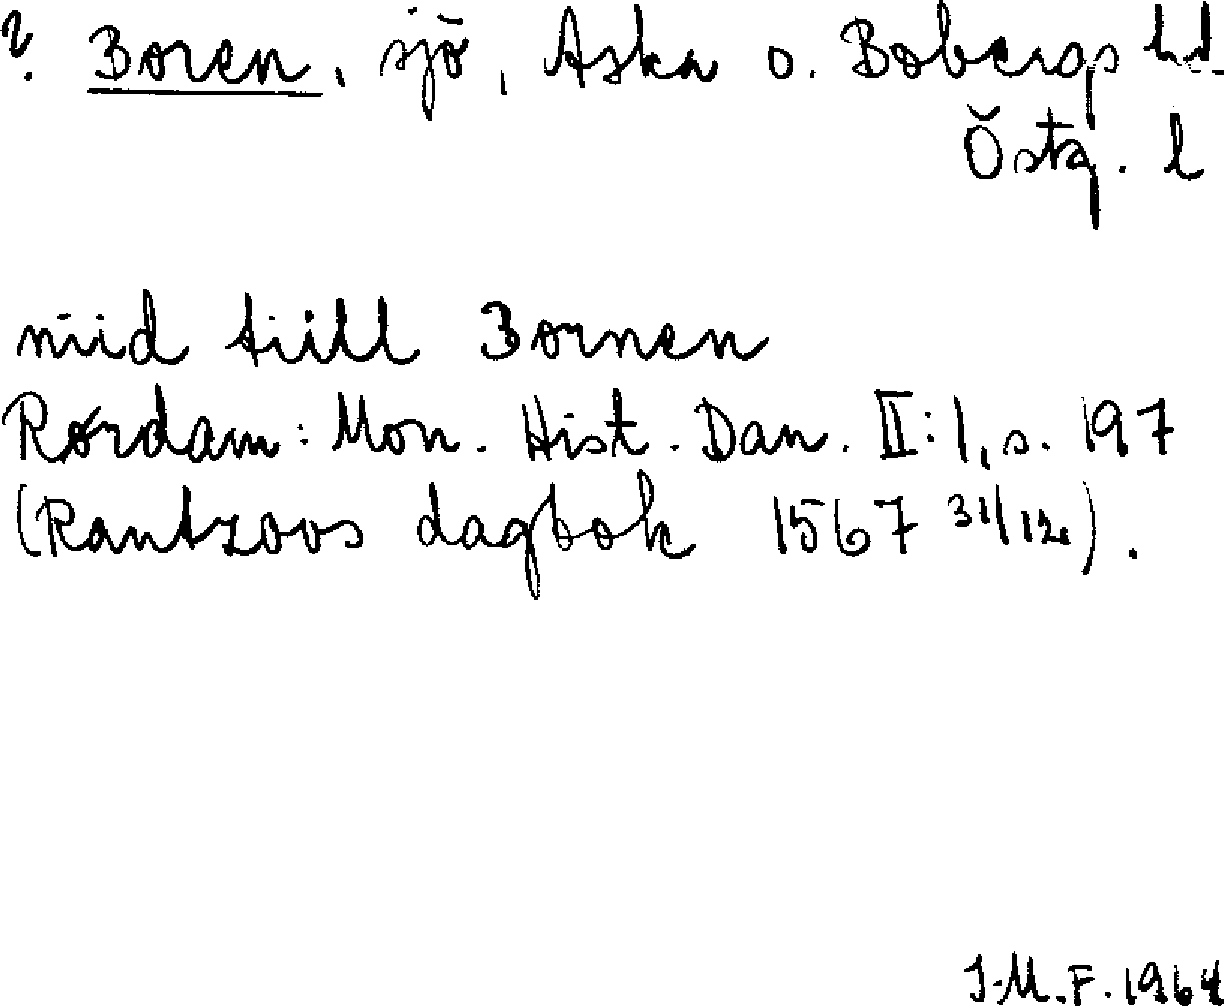 ? Boren, sjö, Aska o. Bobergs hd
Östg. l
niid tiill Bornen
Rørdam: Mon. Hist. Dan. II:1, s. 197
(Rantzoos dagbok 1567 31/12).
J.M.F. 1964